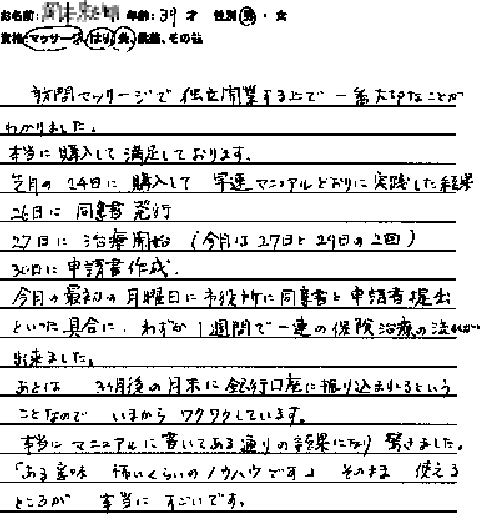 お名前: 年齢: 39 才 性別 男・女
資格 マッサージ、はり、灸、柔整、その他
訪問マッサージで独立開業する上で一番大切なことが
わかりました。
本当に購入して満足しております。
先月の24日に購入して 早速マニュアルどおりに実践した結果
26日に 同意書発行
27日に 治療開始 (今月は27日と29日の2回)
30日に申請書作成。
今月の最初の月曜日に市役所に同意書と申請書提出
といった具合に、わずか1週間で一連の保険治療の流れが
出来ました。
あとは 3ヶ月後の月末に銀行口座に振り込まれるという
ことなので いまからワクワクしています。
本当にマニュアルに書いてある通りの結果になり驚きました。
「ある意味 怖いくらいのノウハウです」 そのまま 使える
ところが 本当に すごいです。